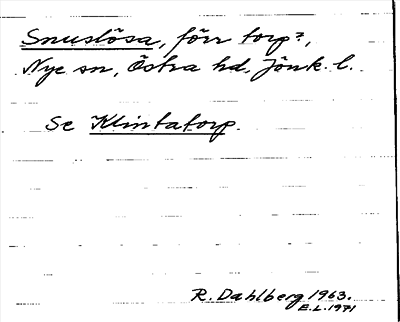 Snuslösa, förr torp?,
Nye sn, Östra hd, Jönk. l.
Se Klintatorp.
R. Dahlberg 1963.
E.L. 1971